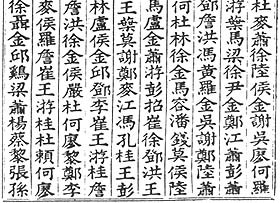 羅彭蕭陸王彭詹李廖孫
何蕭彭侯洪王桂鄭何張
廖江鄭莫鄧桂游黎賴黎
吳鄭謝錢徐孔王廖杜蔡
謝金吳潘崔馮崔何桂楊
金尹金容招江李杜游蕭
侯徐羅馬彭麥鄧嚴王梁
陸梁黃金游鄭邱侯崔鷄
徐馬馬徐蕭謝金金詹邱
蕭葉洪林金莫侯徐羅金
麥游詹杜盧葉盧洪侯聶
林鄧何馬王林詹麥徐